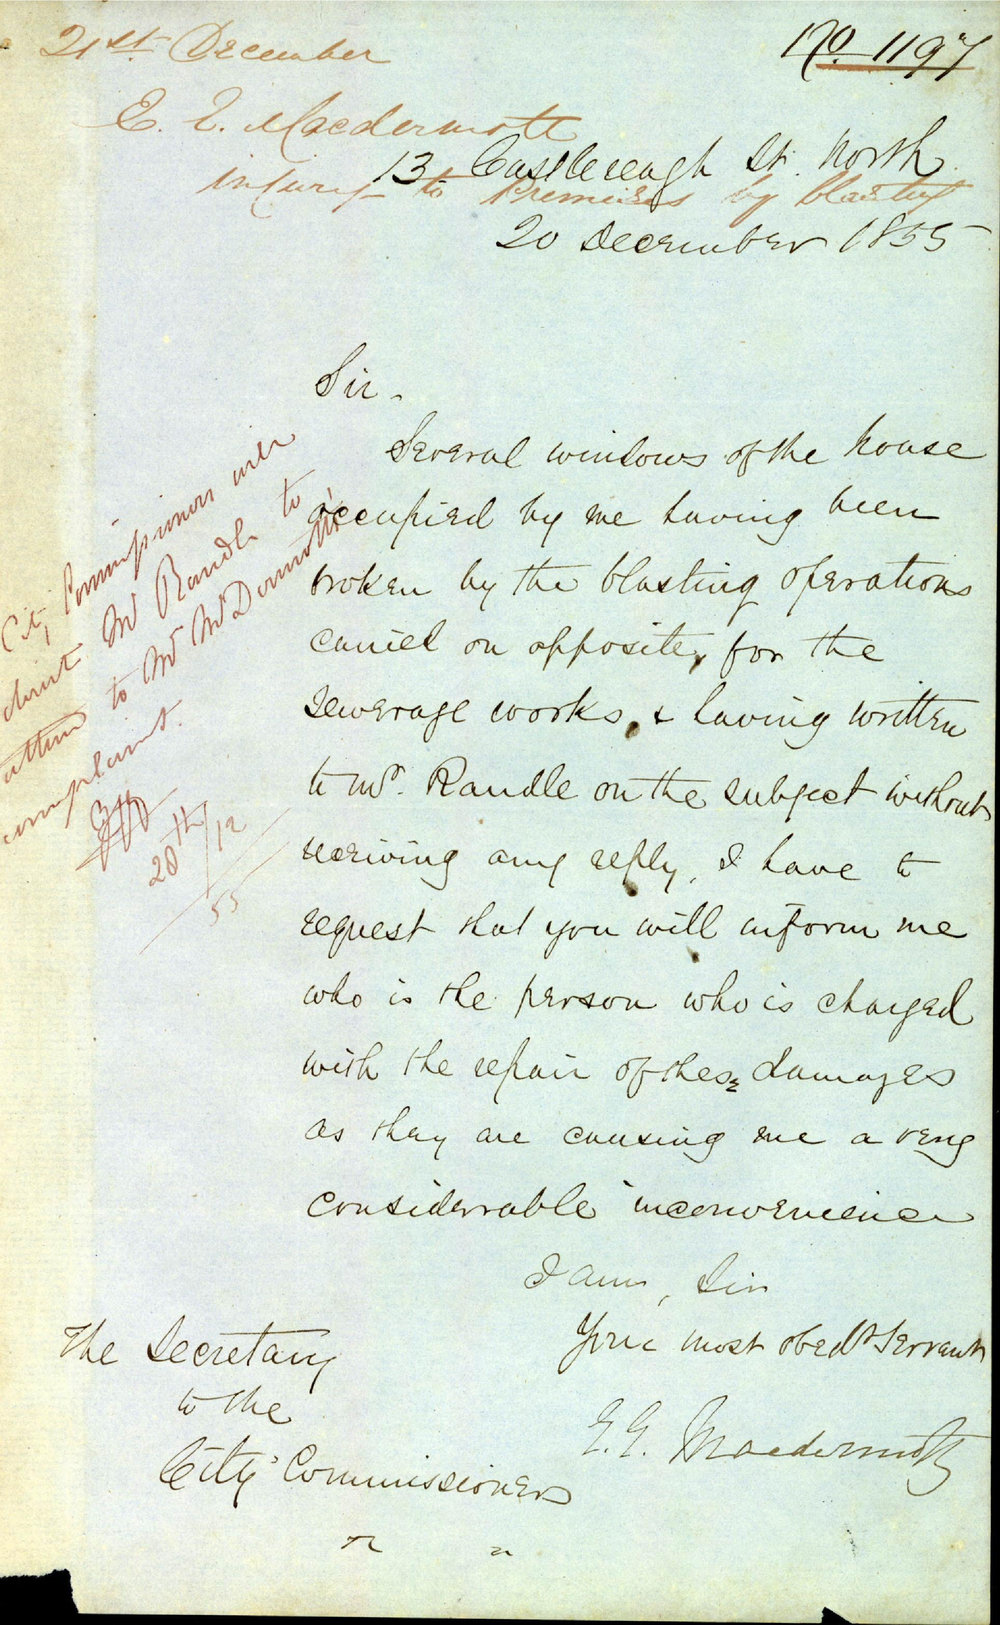 21st December
No 1197
E. E. Macdermott
13 Castlereagh St. North
injury to Premises by blasting
20 December 1855
Sir.
Several windows of the house
occupied by me having been
broken by the blasting operations
carried on opposite, for the
sewerage works, & having written
to Mr. Randle on the subject without
receiving any reply, I have to
request that you will inform me
who is the person who is charged
with the repair of these damages
as they are causing me a very
considerable inconvenience
I am, Sir
Your most obedt Servant
E. E. Macdermott
The Secretary
to the
City Commissioners
City Commissioner will
direct Mr Randle to
attend to Mr McDermott's
complaint.
20th/12
55